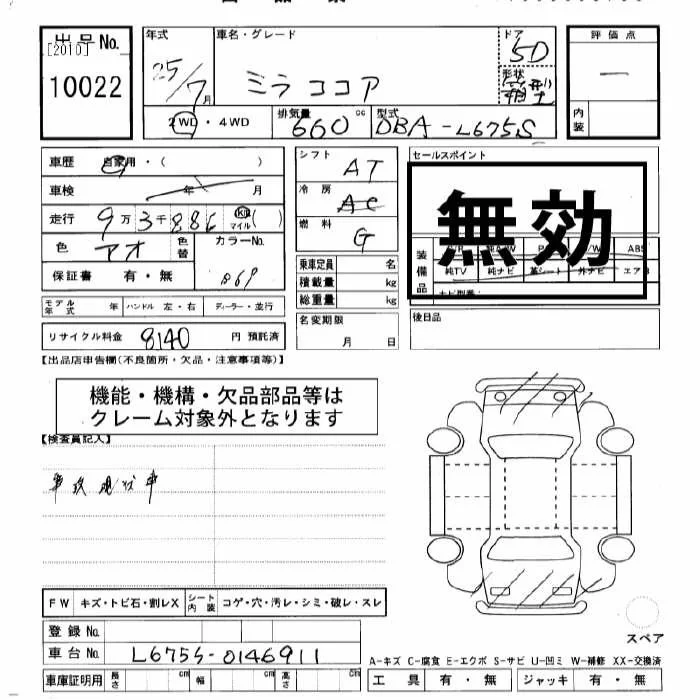 出品No.
[2010]
10022
年式
25/7月
車名・グレード
ミラココア
ドア
5D
形状
箱型
評価点
一
内装
2WD・4WD
排気量
660 cc
型式
DBA-L675S
車歴 自家用・( )
車検 年 月
走行 9万3千886 Km マイル ( )
色 アオ 色替
カラーNo.
B69
保証書 有・無
モデル年式 年 ハンドル 左・右 ディーラー・並行
リサイクル料金 8140 円 預託済
シフト AT
冷房 AC
燃料 G
乗車定員 名
積載量 kg
総重量 kg
名変期限
月 日
セールスポイント
無効
装備品
ABS
純TV 純ナビ 革シート 外ナビ エアB
後日品
【出品店申告欄(不良箇所・欠品・注意事項等)】
機能・機構・欠品部品等は
クレーム対象外となります
【検査員記入】
事故現状車
FW キズ・トビ石・割レX シート内装 コゲ・穴・汚レ・シミ・破レ・スレ
登録No.
車台No. L675S-0146911
車庫証明用 長さ cm 幅 cm 高さ cm
スペア
A-キズ C-腐食 E-エクボ S-サビ U-凹ミ W-補修 XX-交換済
工具 有・無 ジャッキ 有・無